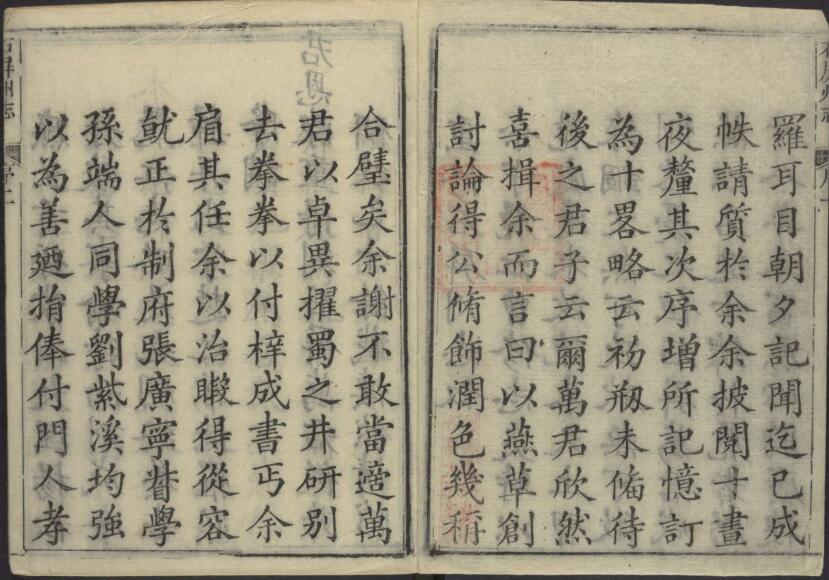 羅耳目朝夕記聞迄已成
帙請質扵余余披閱十晝
夜釐其次序增所記憶訂
為十畧略云初剏未俻待
後之君子云爾萬君欣然
喜揖余而言曰以燕草創
討論得公脩飾潤色幾稱
合璧矣余謝不敢當適萬
君以卓異擢蜀之井研别
去拳拳以付梓成書丐余
肩其任余以治暇得從容
就正扵制府張廣寧督學
孫端人同學劉紫溪均強
以為善廼捐俸付門人孝
石屏州志